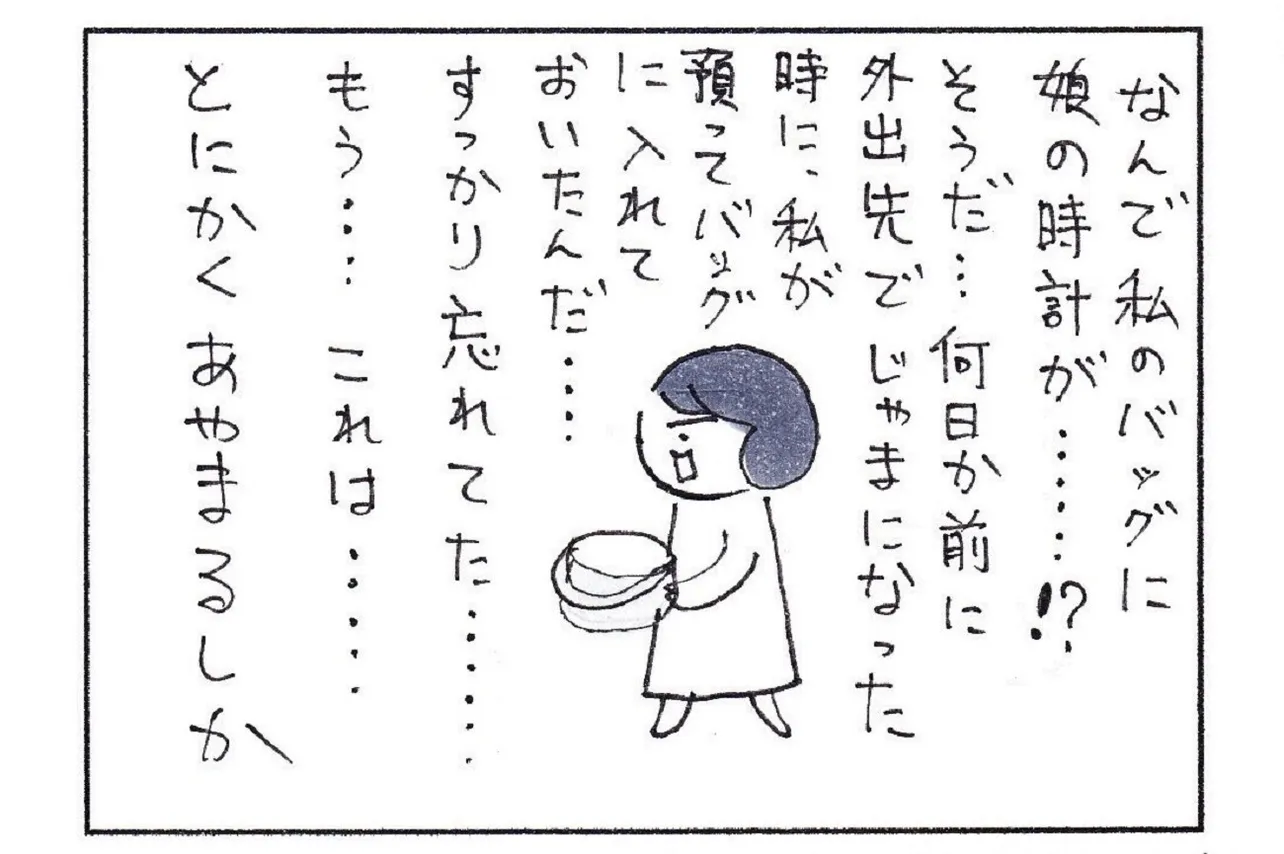 なんで私のバッグに
娘の時計が……!?
そうだ…何日か前に
外出先でじゃまになった
時に、私が
預ってバッグ
に入れて
おいたんだ……
すっかり忘れてた……
もう…… これは……
とにかくあやまるしか